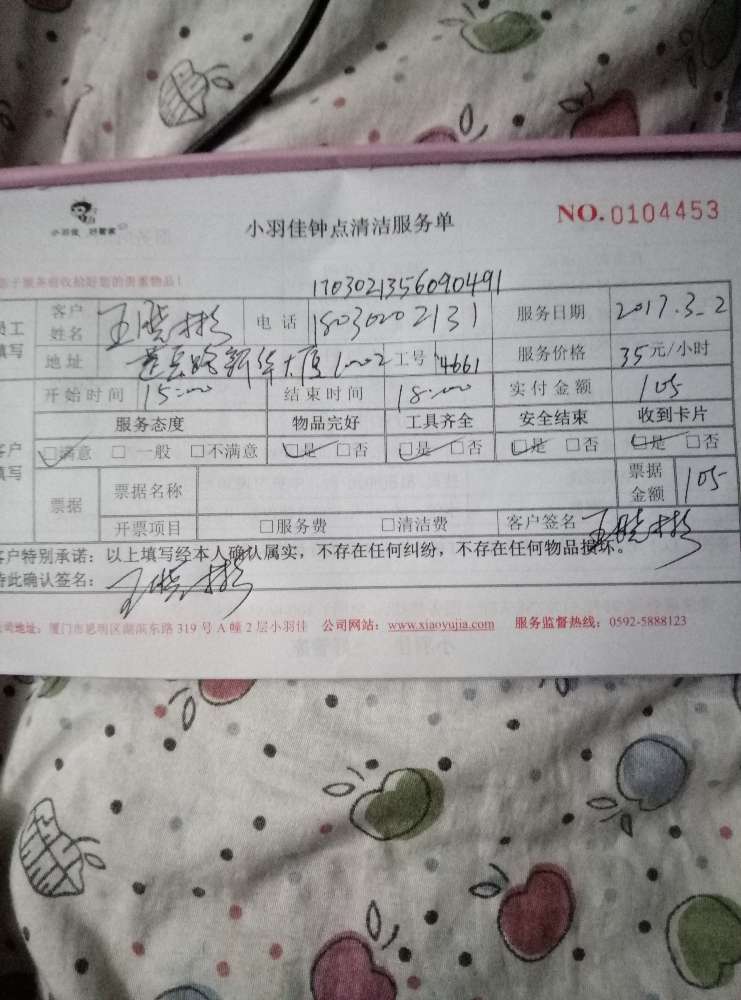 小羽佳 好管家
小羽佳钟点清洁服务单
NO.0104453
服务前收拾好您的贵重物品!
1703021356090491
员工填写
客户姓名 王晓彬 电话 18030202131 服务日期 2017.3.2
地址 新华大厦1002 工号 4661 服务价格 35元/小时
开始时间 15:00 结束时间 18:00 实付金额 105
客户填写
服务态度 物品完好 工具齐全 安全结束 收到卡片
☑满意 □一般 □不满意 ☑是 □否 ☑是 □否 ☑是 □否 ☑是 □否
票据 票据名称 票据金额 105
开票项目 □服务费 □清洁费 客户签名 王晓彬
客户特别承诺:以上填写经本人确认属实,不存在任何纠纷,不存在任何物品损坏。
特此确认签名: 王晓彬
公司地址:厦门市思明区湖滨东路 319 号 A 幢 2 层小羽佳 公司网站:www.xiaoyujia.com 服务监督热线:0592-5888123